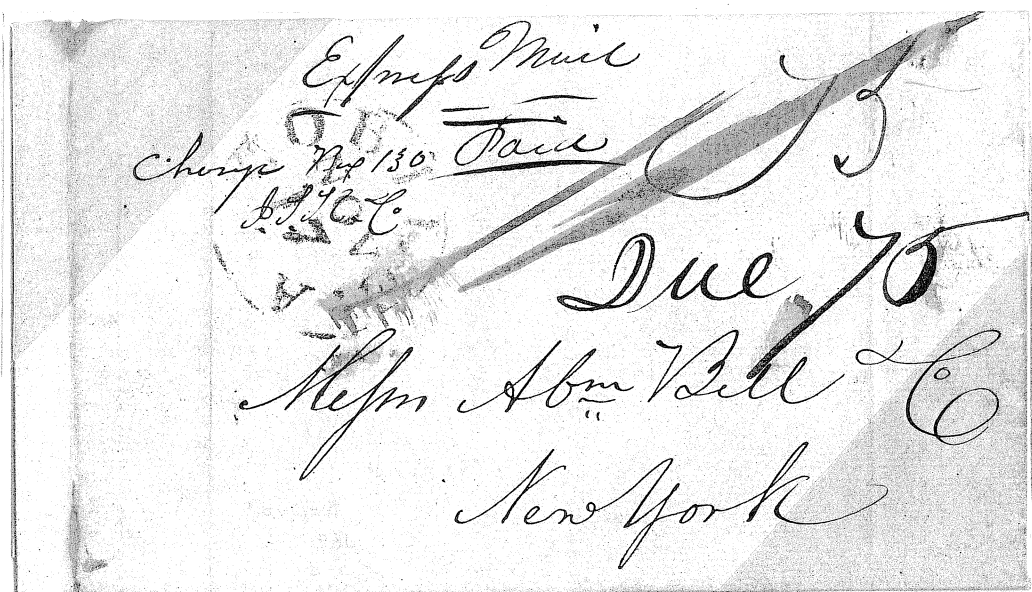 Express Mail
Paid
Charge Box 130
Due 75
Messrs Abm Bell & Co
New York